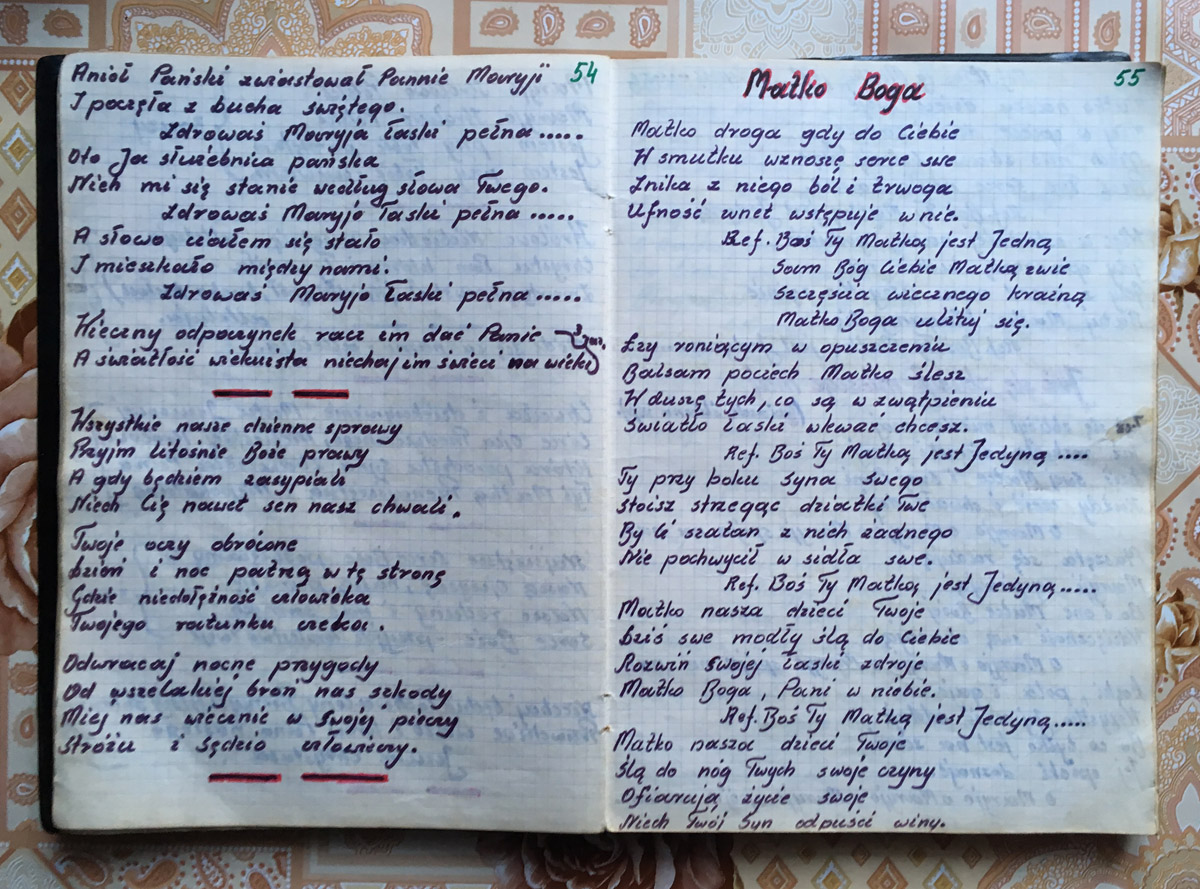 54
Anioł Pański zwiastował Pannie Maryji
I poczęła z Ducha Świętego.
Zdrowaś Maryja łaski pełna.....
Oto Ja służebnica pańska
Niech mi się stanie według słowa Twego.
Zdrowaś Maryjo łaski pełna.....
A słowo ciałem się stało
I mieszkało między nami.
Zdrowaś Maryjo łaski pełna.....
Wieczny odpoczynek racz im dać Panie 3 raz.
A światłość wiekuista niechaj im świeci na wieki
Wszystkie nasze dzienne sprawy
Przyjm litośnie Boże prawy
A gdy będziem zasypiali
Niech Cię nawet sen nasz chwali.
Twoje oczy obrócone
Dzień i noc patrzą w tę stronę
Gdzie niedołężność człowieka
Twojego ratunku czeka.
Odwracaj nocne przygody
Od wszelakiej broń nas szkody
Miej nas wiecznie w Swojej pieczy
Stróżu i Sędzio człowieczy.
55
Matko Boga
Matko droga gdy do Ciebie
W smutku wznoszę serce swe
Znika z niego ból i trwoga
Ufność wnet wstępuje w nie.
Ref. Boś Ty Matką jest Jedną
Sam Bóg Ciebie Matką zwie
Szczęścia wiecznego krainą
Matko Boga ulituj się.
Łzy roniącym w opuszczeniu
Balsam pociech Matko ślesz
W duszę tych, co są w zwątpieniu
Światło łaski wlewać chcesz.
Ref. Boś Ty Matką jest Jedyną ....
Ty przy boku Syna swego
Stoisz strzegąc dziatki Twe
By li szatan z nich żadnego
Nie pochwycił w sidła swe.
Ref. Boś Ty Matką jest Jedyną.....
Matko nasza dzieci Twoje
Dziś swe modły ślą do Ciebie
Rozwiń swojej łaski zdroje
Matko Boga, Pani w niebie.
Ref. Boś Ty Matką jest Jedyną.....
Matko nasza dzieci Twoje
Ślą do nóg Twych swoje czyny
Ofiarują życie swoje
Niech Twój Syn odpuści winy.